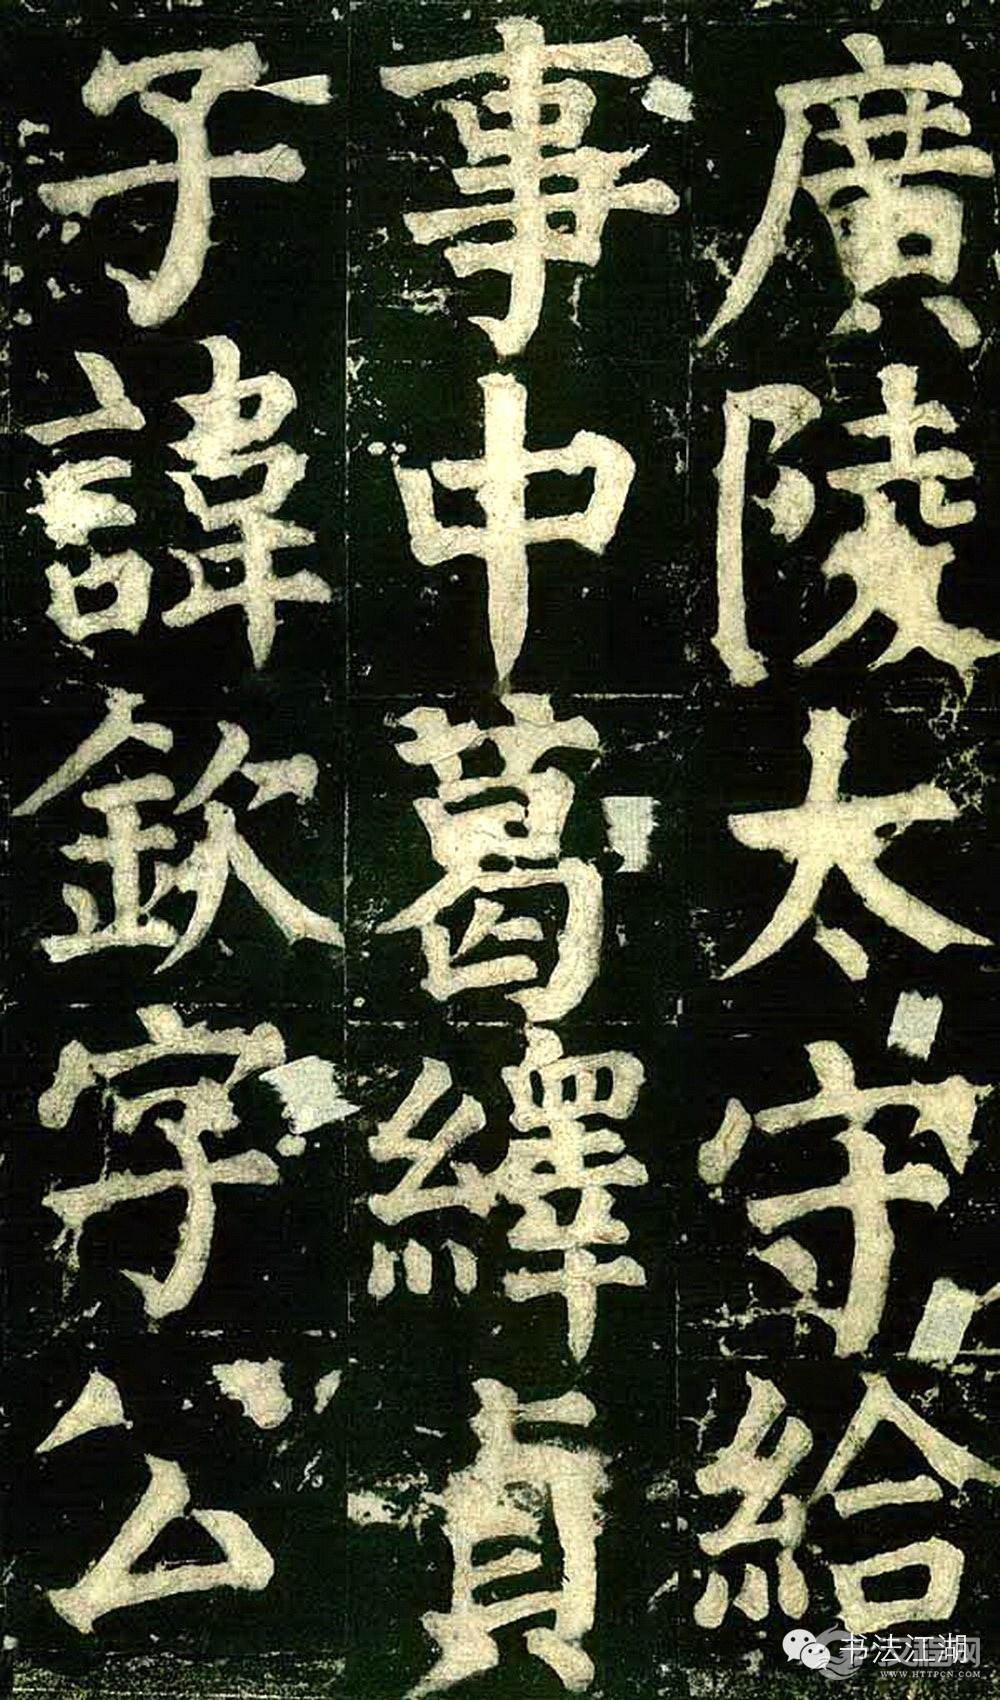 廣陵太守給
事中葛繹貞
子諱欽字公
书法江湖
WWW.HTTPCN.COM